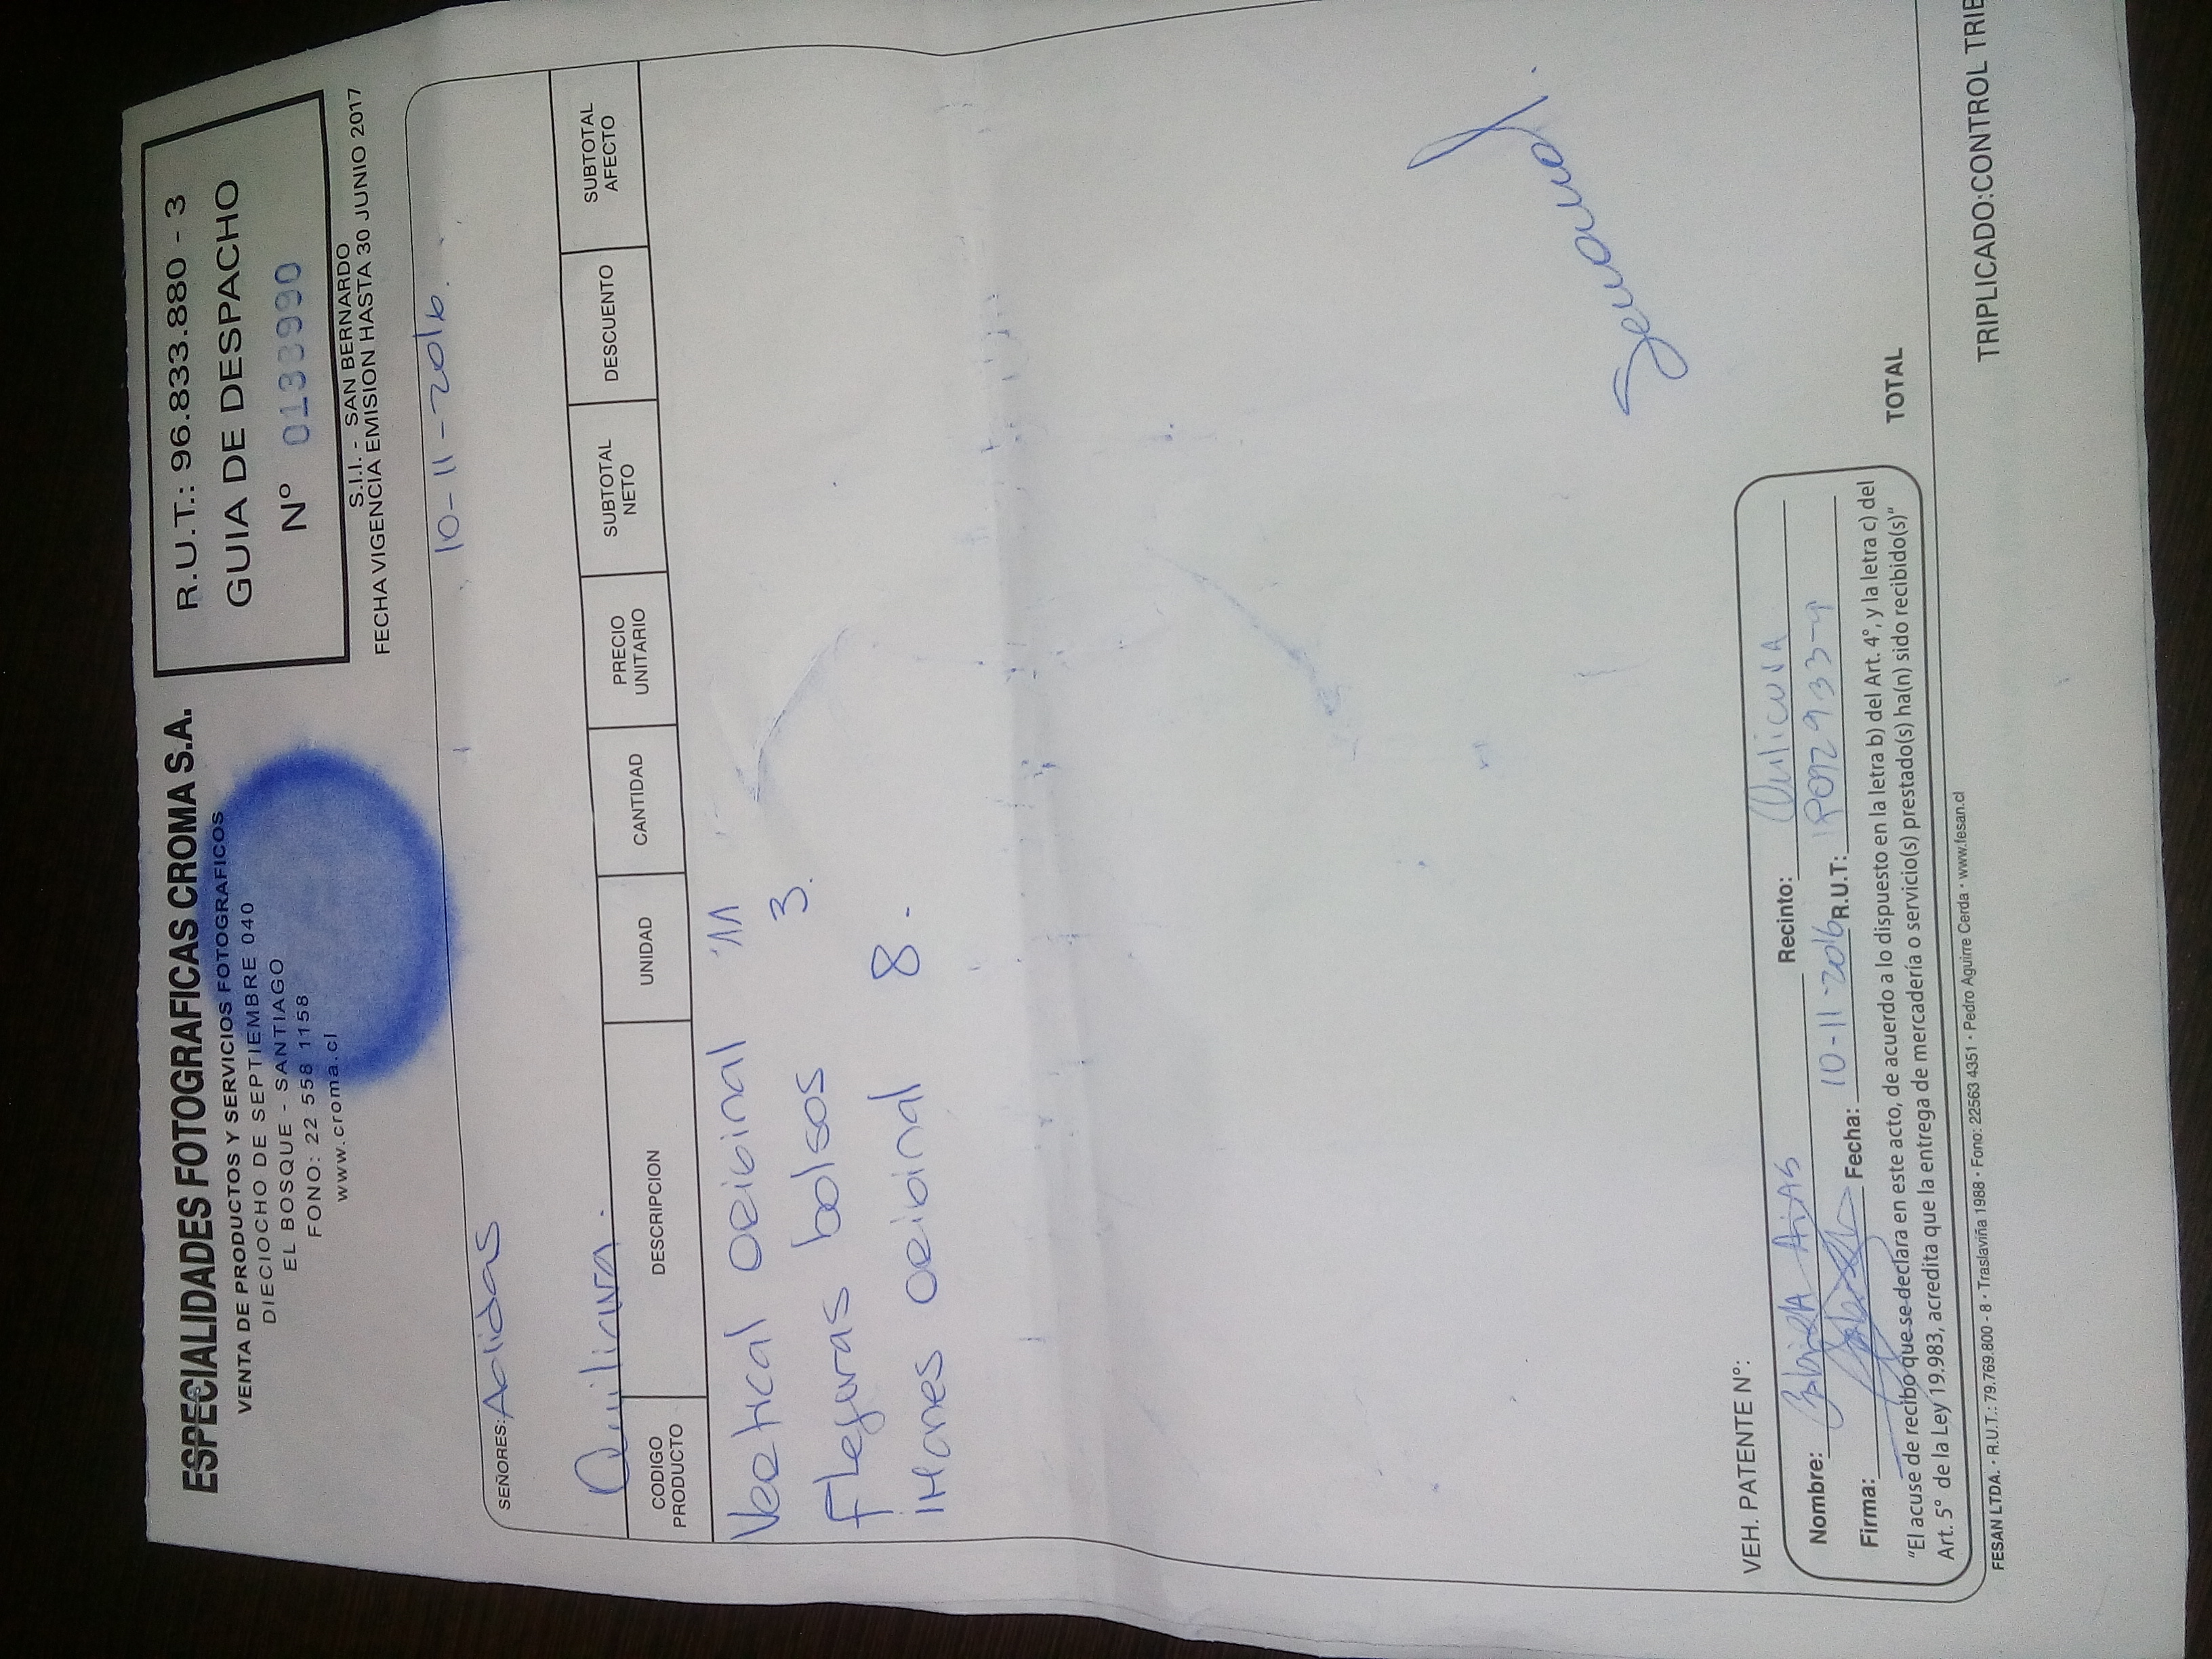 ESPECIALIDADES FOTOGRAFICAS CROMA S.A.
VENTA DE PRODUCTOS Y SERVICIOS FOTOGRAFICOS
DIECIOCHO DE SEPTIEMBRE 040
EL BOSQUE - SANTIAGO
FONO: 22 558 1158
www.croma.cl
R.U.T.: 96.833.880 - 3
GUIA DE DESPACHO
N° 0133990
S.I.I. - SAN BERNARDO
FECHA VIGENCIA EMISION HASTA 30 JUNIO 2017
10-11-2016.
SEÑORES: Adidas
Quilicura.
CODIGO PRODUCTO DESCRIPCION UNIDAD CANTIDAD PRECIO UNITARIO SUBTOTAL NETO DESCUENTO SUBTOTAL AFECTO
Vertical original 11
bolsos 3.
imanes original 8.
VEH. PATENTE N°:
Nombre: Gabriela Arias Recinto: Quilicura
Firma: Fecha: 10-11-2016 R.U.T:
"El acuse de recibo que se declara en este acto, de acuerdo a lo dispuesto en la letra b) del Art. 4°, y la letra c) del
Art. 5° de la Ley 19.983, acredita que la entrega de mercadería o servicio(s) prestado(s) ha(n) sido recibido(s)"
TOTAL
FESAN LTDA. · R.U.T.: 79.769.800 - 8 · Traslaviña 1988 · Fono: 22563 4351 · Pedro Aguirre Cerda · www.fesan.cl
TRIPLICADO:CONTROL TRIB